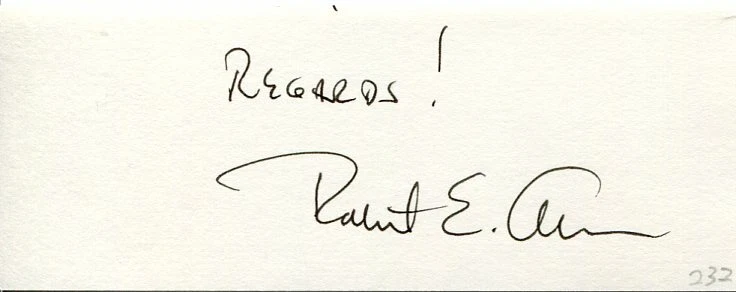 REGARDS!
Robert E.
232